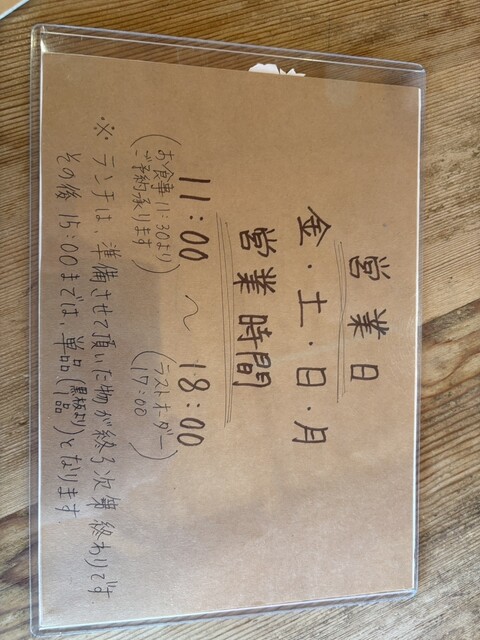 営業日
金・土・日・月
営業時間
11:00 〜 18:00
(お食事11:30より
ご予約承ります)
(ラストオーダー
17:00)
※ランチは、準備させて頂いた物が終り次第終わりです
その後15:00までは、単品(黒板より1品)となります